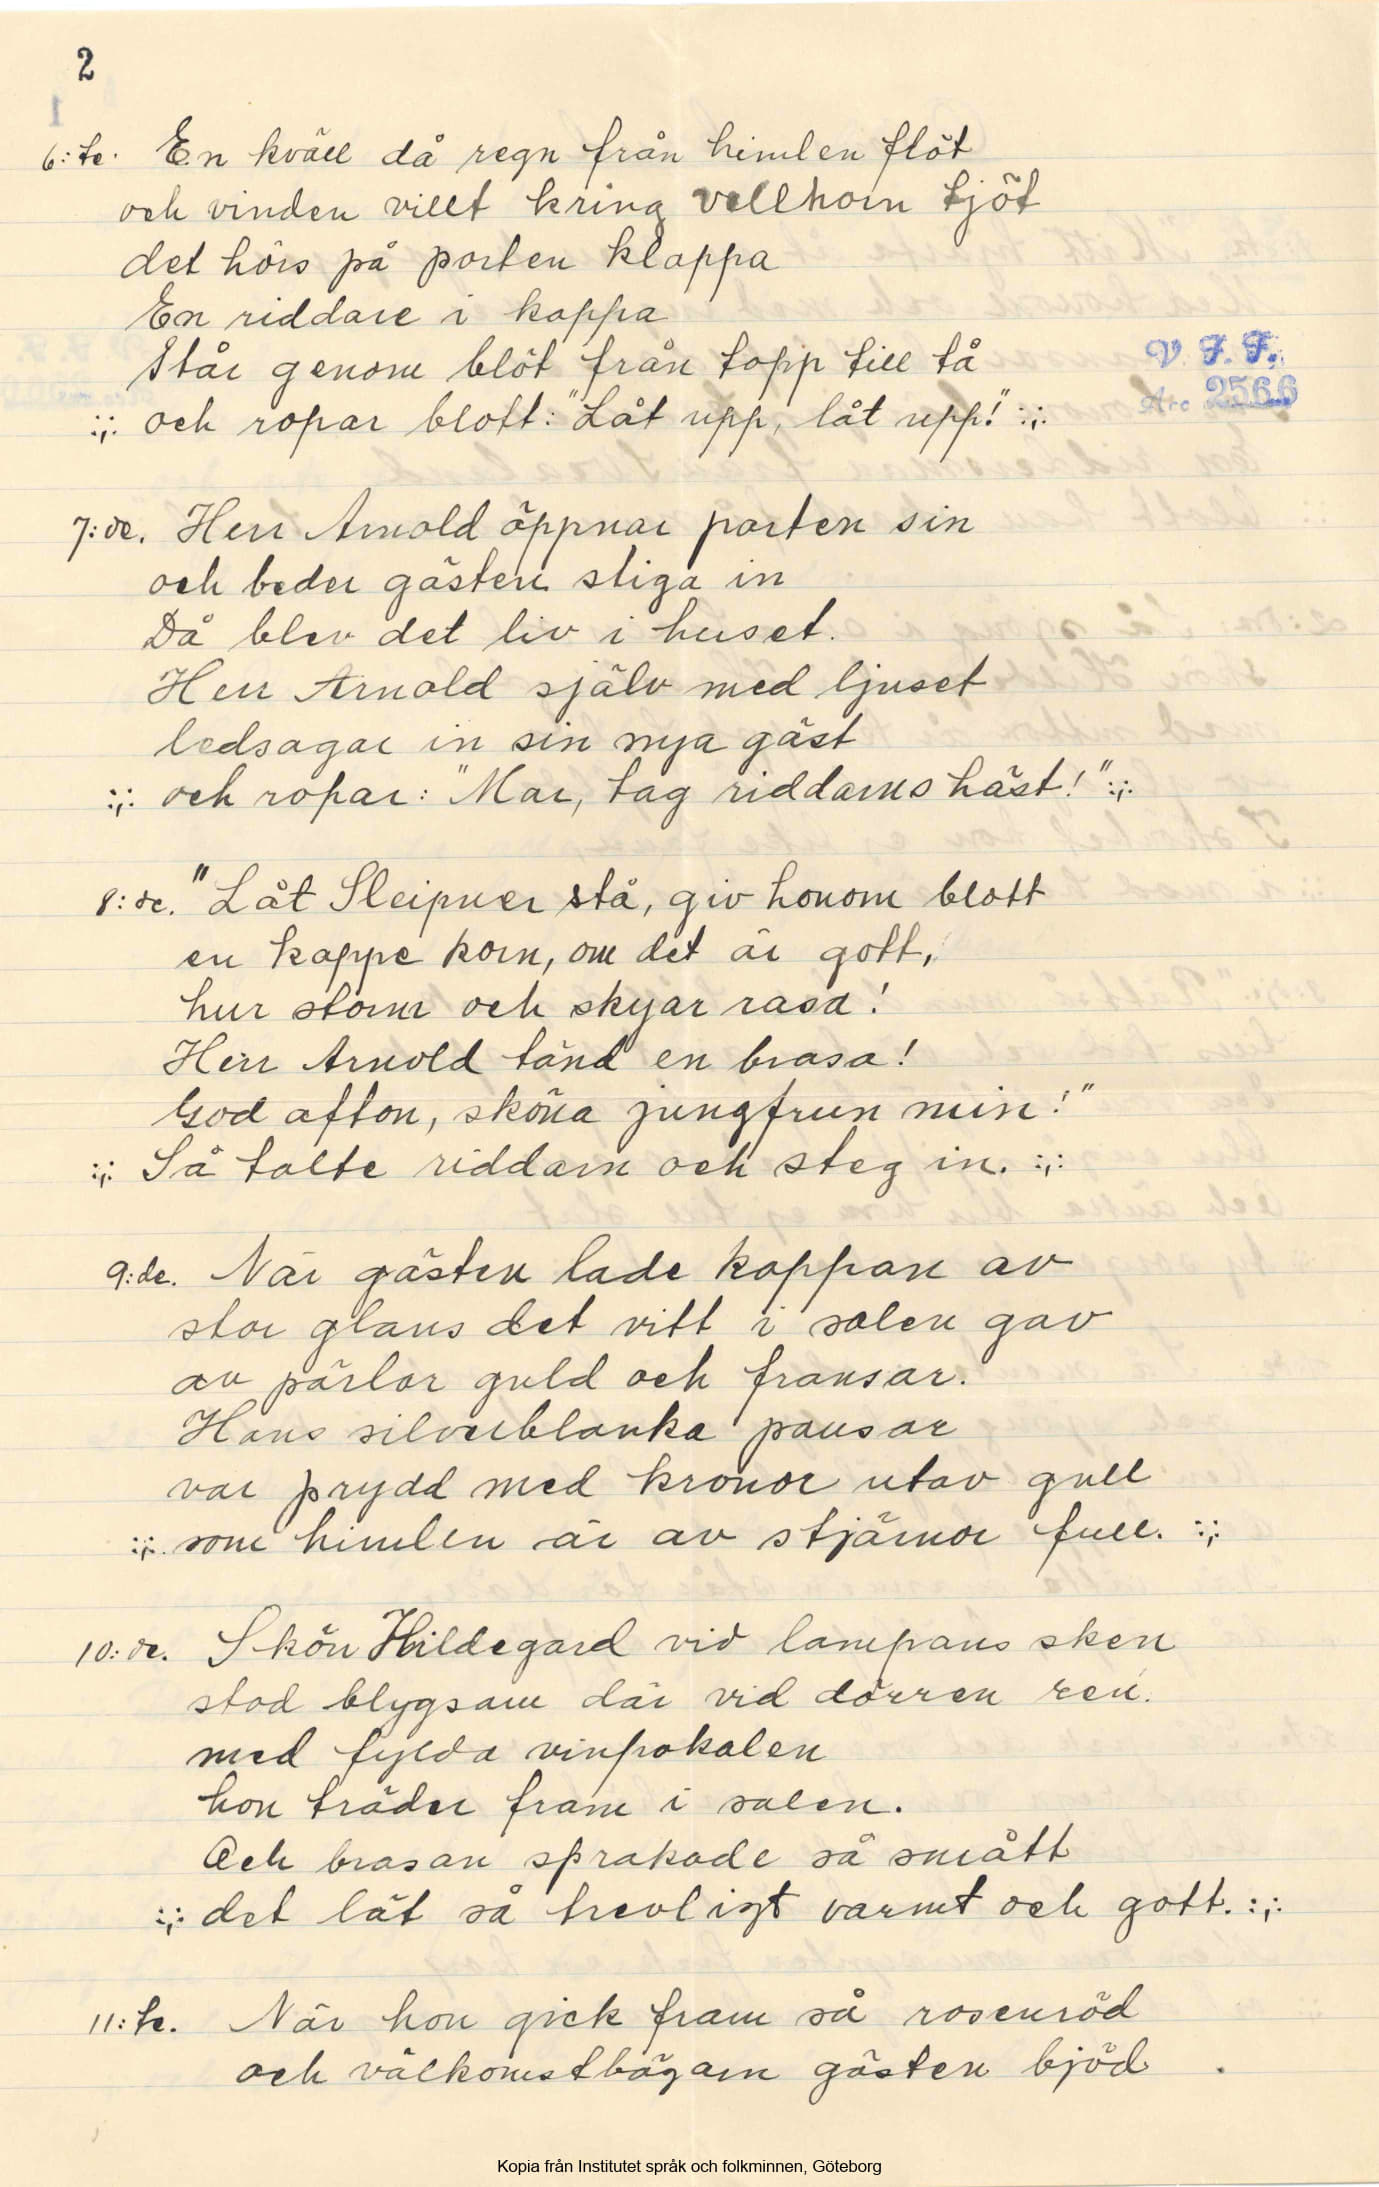 2
1
6:te. En kväll då regn från himlen flöt
och vinden villt kring vellhorn tjöt
det hörs på porten klappa
En riddare i kappa
Står genom blöt från topp till tå
V. F. F.
Acc 2566
:,: och ropar blott: "Låt upp, låt upp!" :,:
7:de. Herr Arnold öppnar porten sin
och beder gästen stiga in
Då blev det liv i huset.
Herr Arnold själv med ljuset
ledsagar in sin nya gäst
:,: och ropar: "Mar, tag riddarns häst!" :,:
8:de. "Låt Sleipner stå, giv honom blott
en kappe korn, om det är gott,
hur storm och skyar rasa!
Herr Arnold tänd en brasa!
God afton, sköna jungfrun min!"
:,: Så talte riddarn och steg in. :,:
9:de. När gästen lade kappan av
stor glans det vitt i salen gav
av pärlor guld och fransar.
Hans silverblanka pansar
var prydd med kronor utav gull
:,: som himlen är av stjärnor full. :,:
10:de. Skön Hildegard vid lampans sken
stod blygsam där vid dörren ren.
med fylda vinpokalen
hon träder fram i salen.
Och brasan sprakade så smått
:,: det lät så trevligt varmt och gott. :,:
11:te. När hon gick fram så rosenröd
och välkomstbägarn gästen bjöd
Kopia från Institutet språk och folkminnen, Göteborg